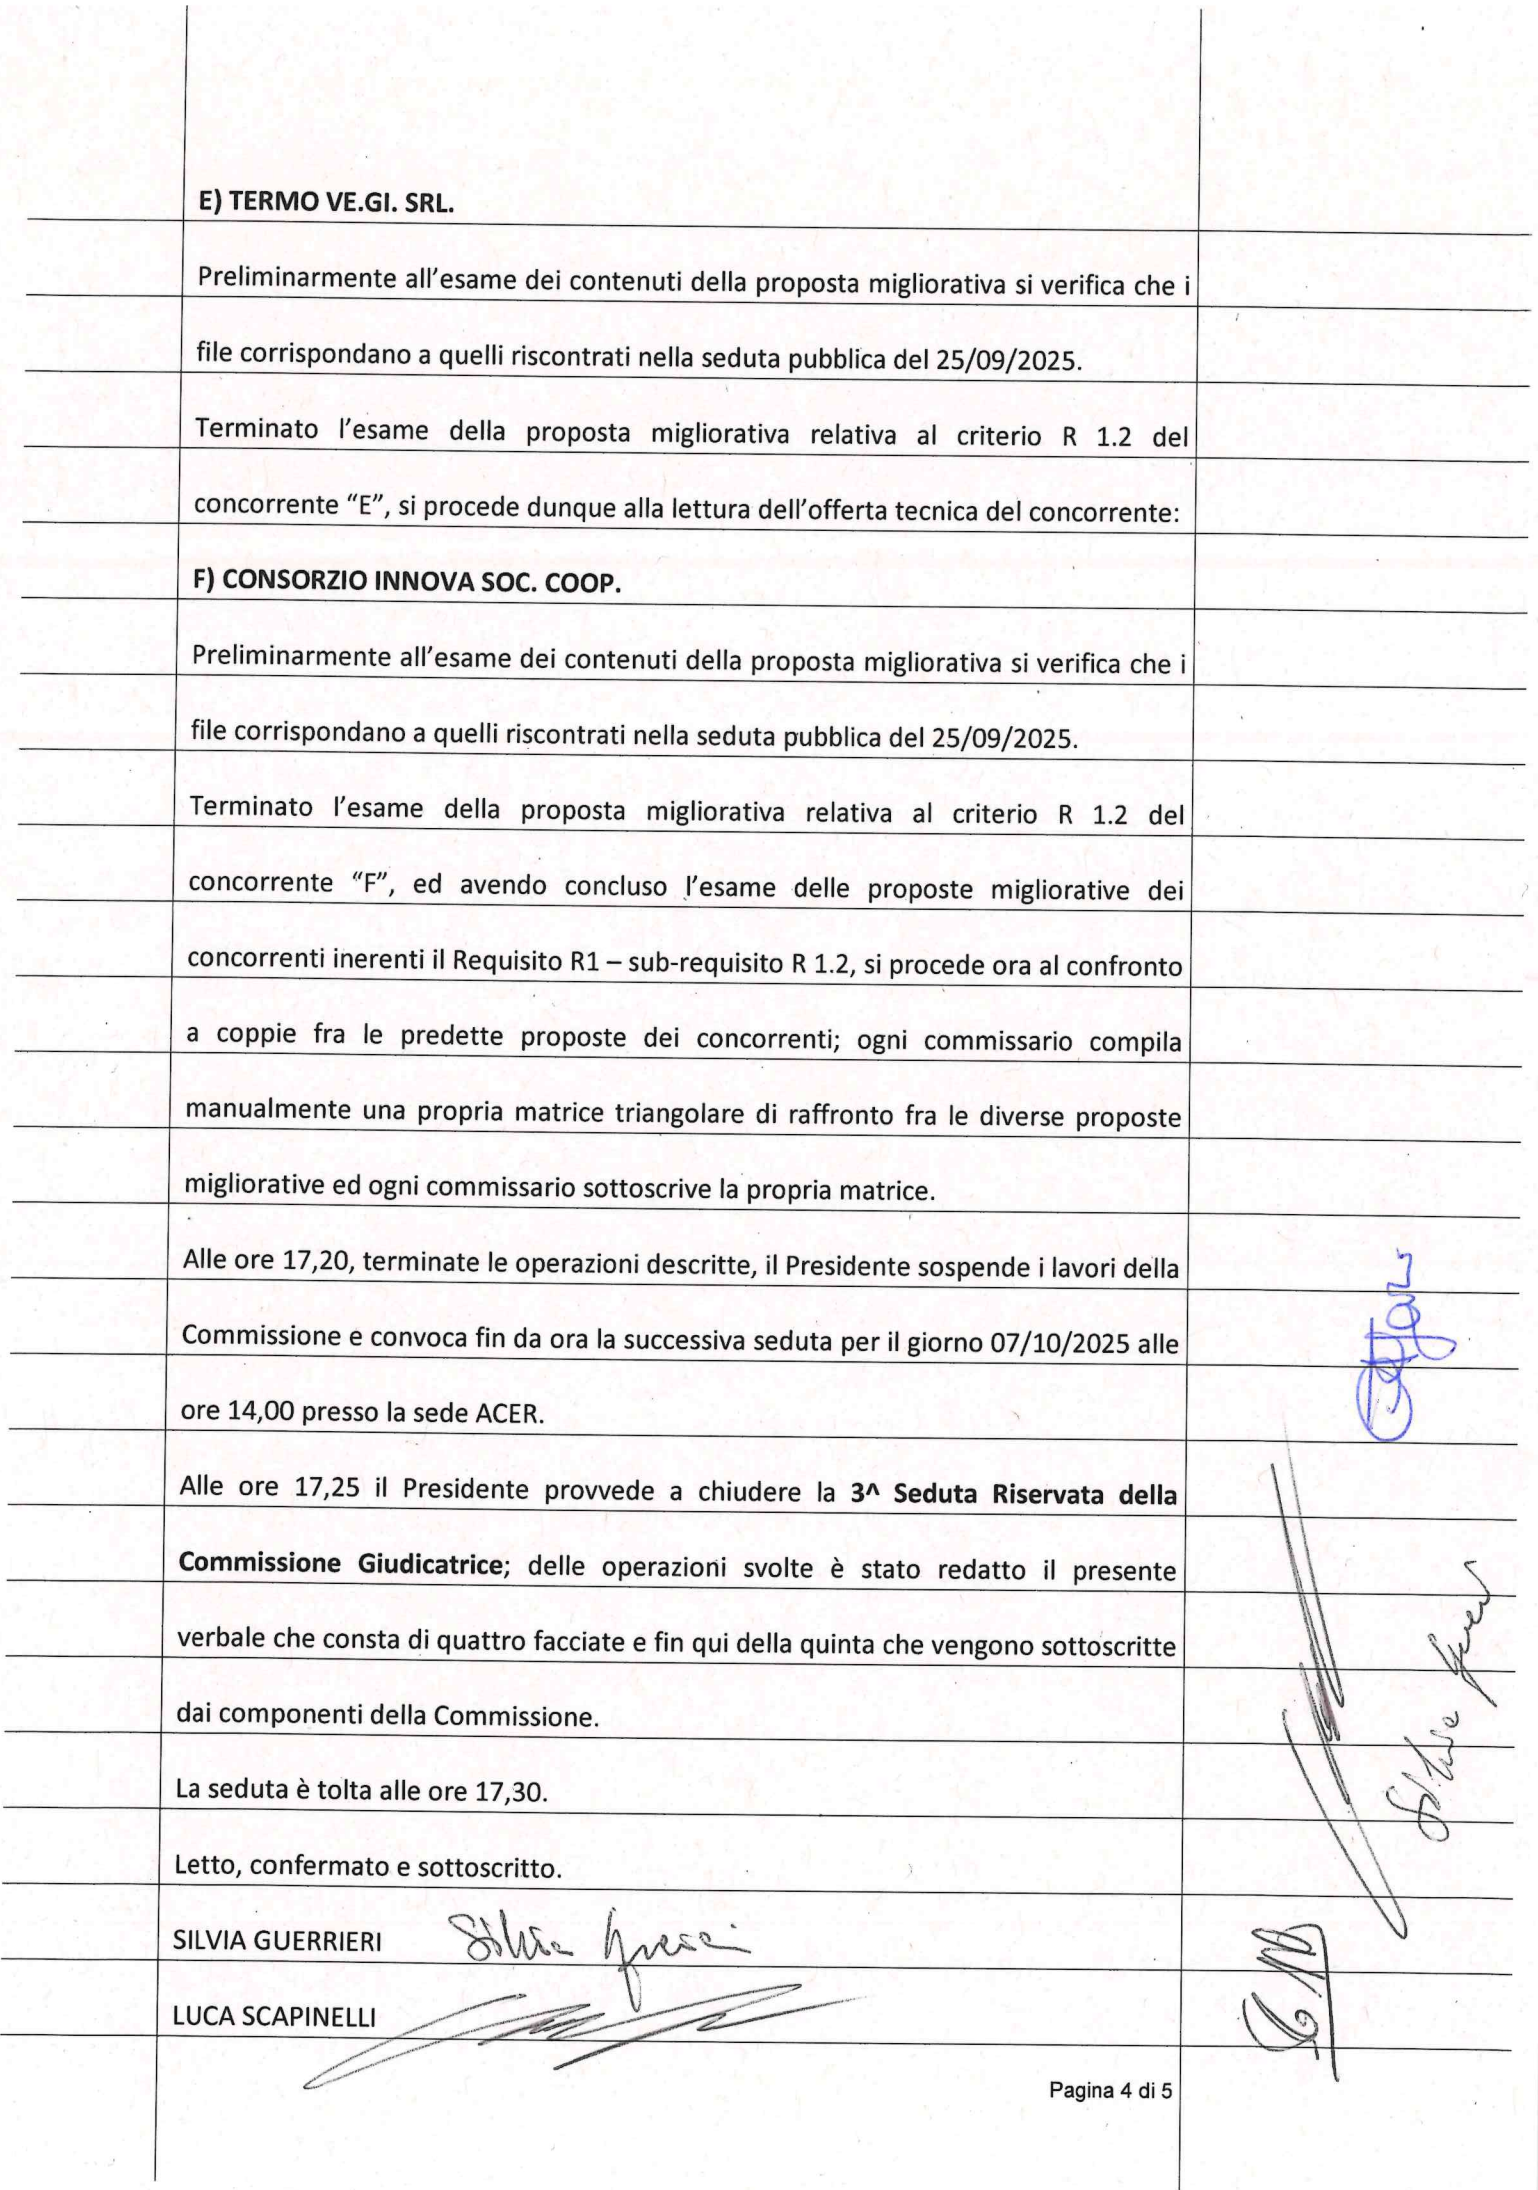 E) TERMO VE.GI. SRL.
Preliminarmente all'esame dei contenuti della proposta migliorativa si verifica che i
file corrispondano a quelli riscontrati nella seduta pubblica del 25/09/2025.
Terminato l'esame della proposta migliorativa relativa al criterio R 1.2 del
concorrente "E", si procede dunque alla lettura dell'offerta tecnica del concorrente:
F) CONSORZIO INNOVA SOC. COOP.
Preliminarmente all'esame dei contenuti della proposta migliorativa si verifica che i
file corrispondano a quelli riscontrati nella seduta pubblica del 25/09/2025.
Terminato l'esame della proposta migliorativa relativa al criterio R 1.2 del
concorrente "F", ed avendo concluso l'esame delle proposte migliorative dei
concorrenti inerenti il Requisito R1 – sub-requisito R 1.2, si procede ora al confronto
a coppie fra le predette proposte dei concorrenti; ogni commissario compila
manualmente una propria matrice triangolare di raffronto fra le diverse proposte
migliorative ed ogni commissario sottoscrive la propria matrice.
Alle ore 17,20, terminate le operazioni descritte, il Presidente sospende i lavori della
Commissione e convoca fin da ora la successiva seduta per il giorno 07/10/2025 alle
ore 14,00 presso la sede ACER.
Alle ore 17,25 il Presidente provvede a chiudere la 3^ Seduta Riservata della
Commissione Giudicatrice; delle operazioni svolte è stato redatto il presente
verbale che consta di quattro facciate e fin qui della quinta che vengono sottoscritte
dai componenti della Commissione.
La seduta è tolta alle ore 17,30.
Letto, confermato e sottoscritto.
SILVIA GUERRIERI Silvia
LUCA SCAPINELLI
Pagina 4 di 5
Silvia